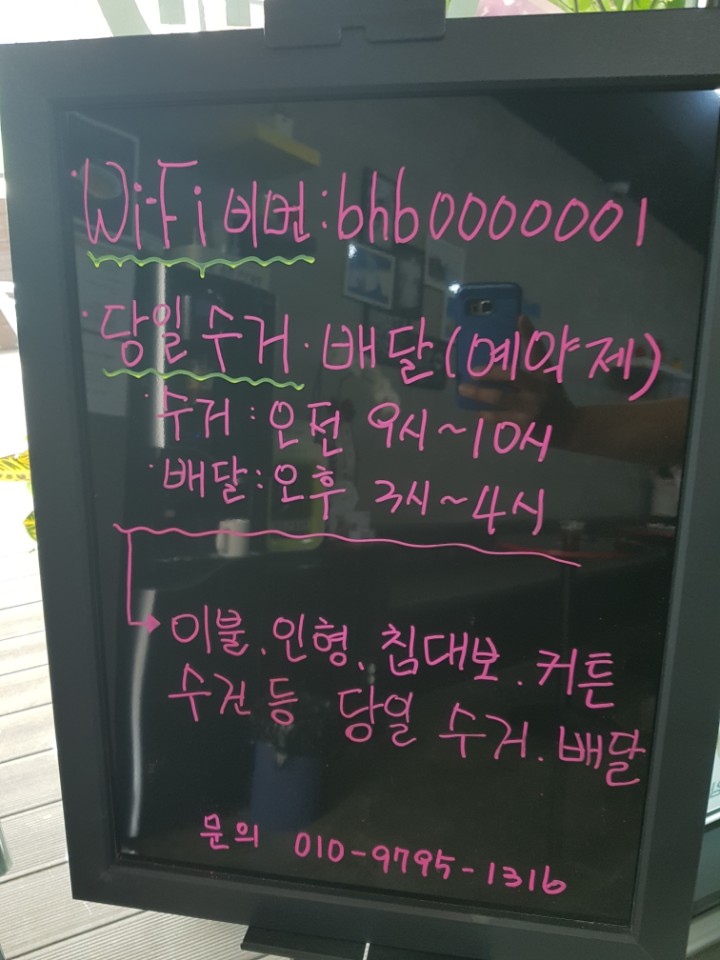 ·WiFi 비번:bhb0000001
·당일 수거·배달(예약제)
·수거:오전 9시~10시
·배달:오후 3시~4시
이불.인형.침대보.커튼
수건등 당일 수거.배달
문의 010-9795-1316